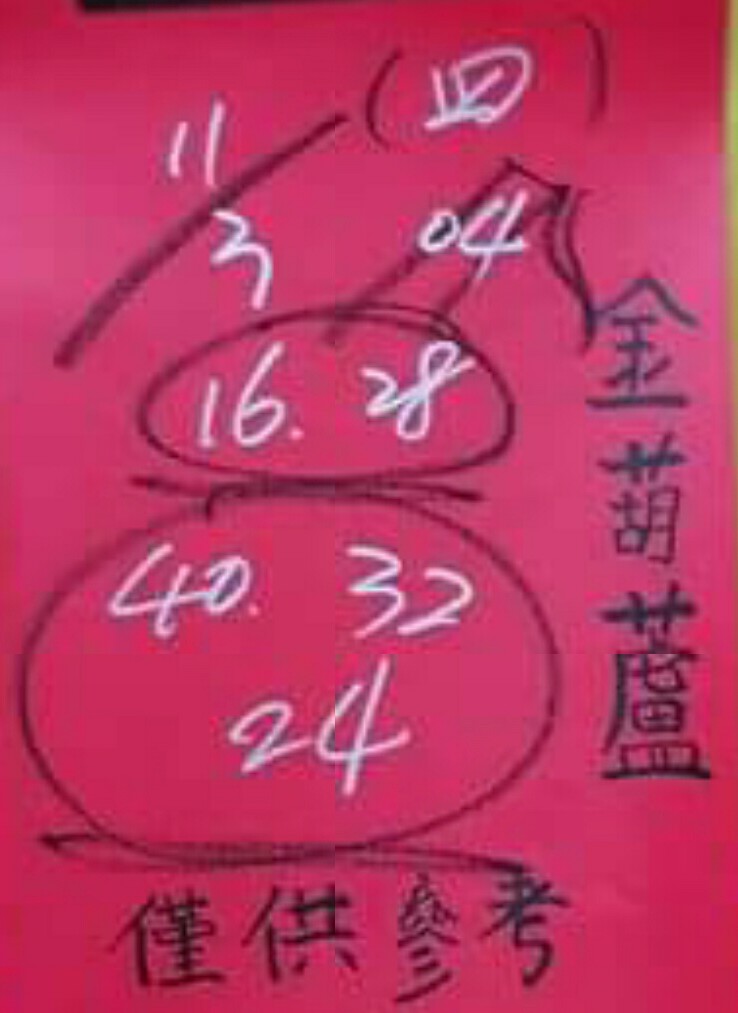 11
3
(四)
04
16. 28
40. 32
24
金葫蘆
僅供參考